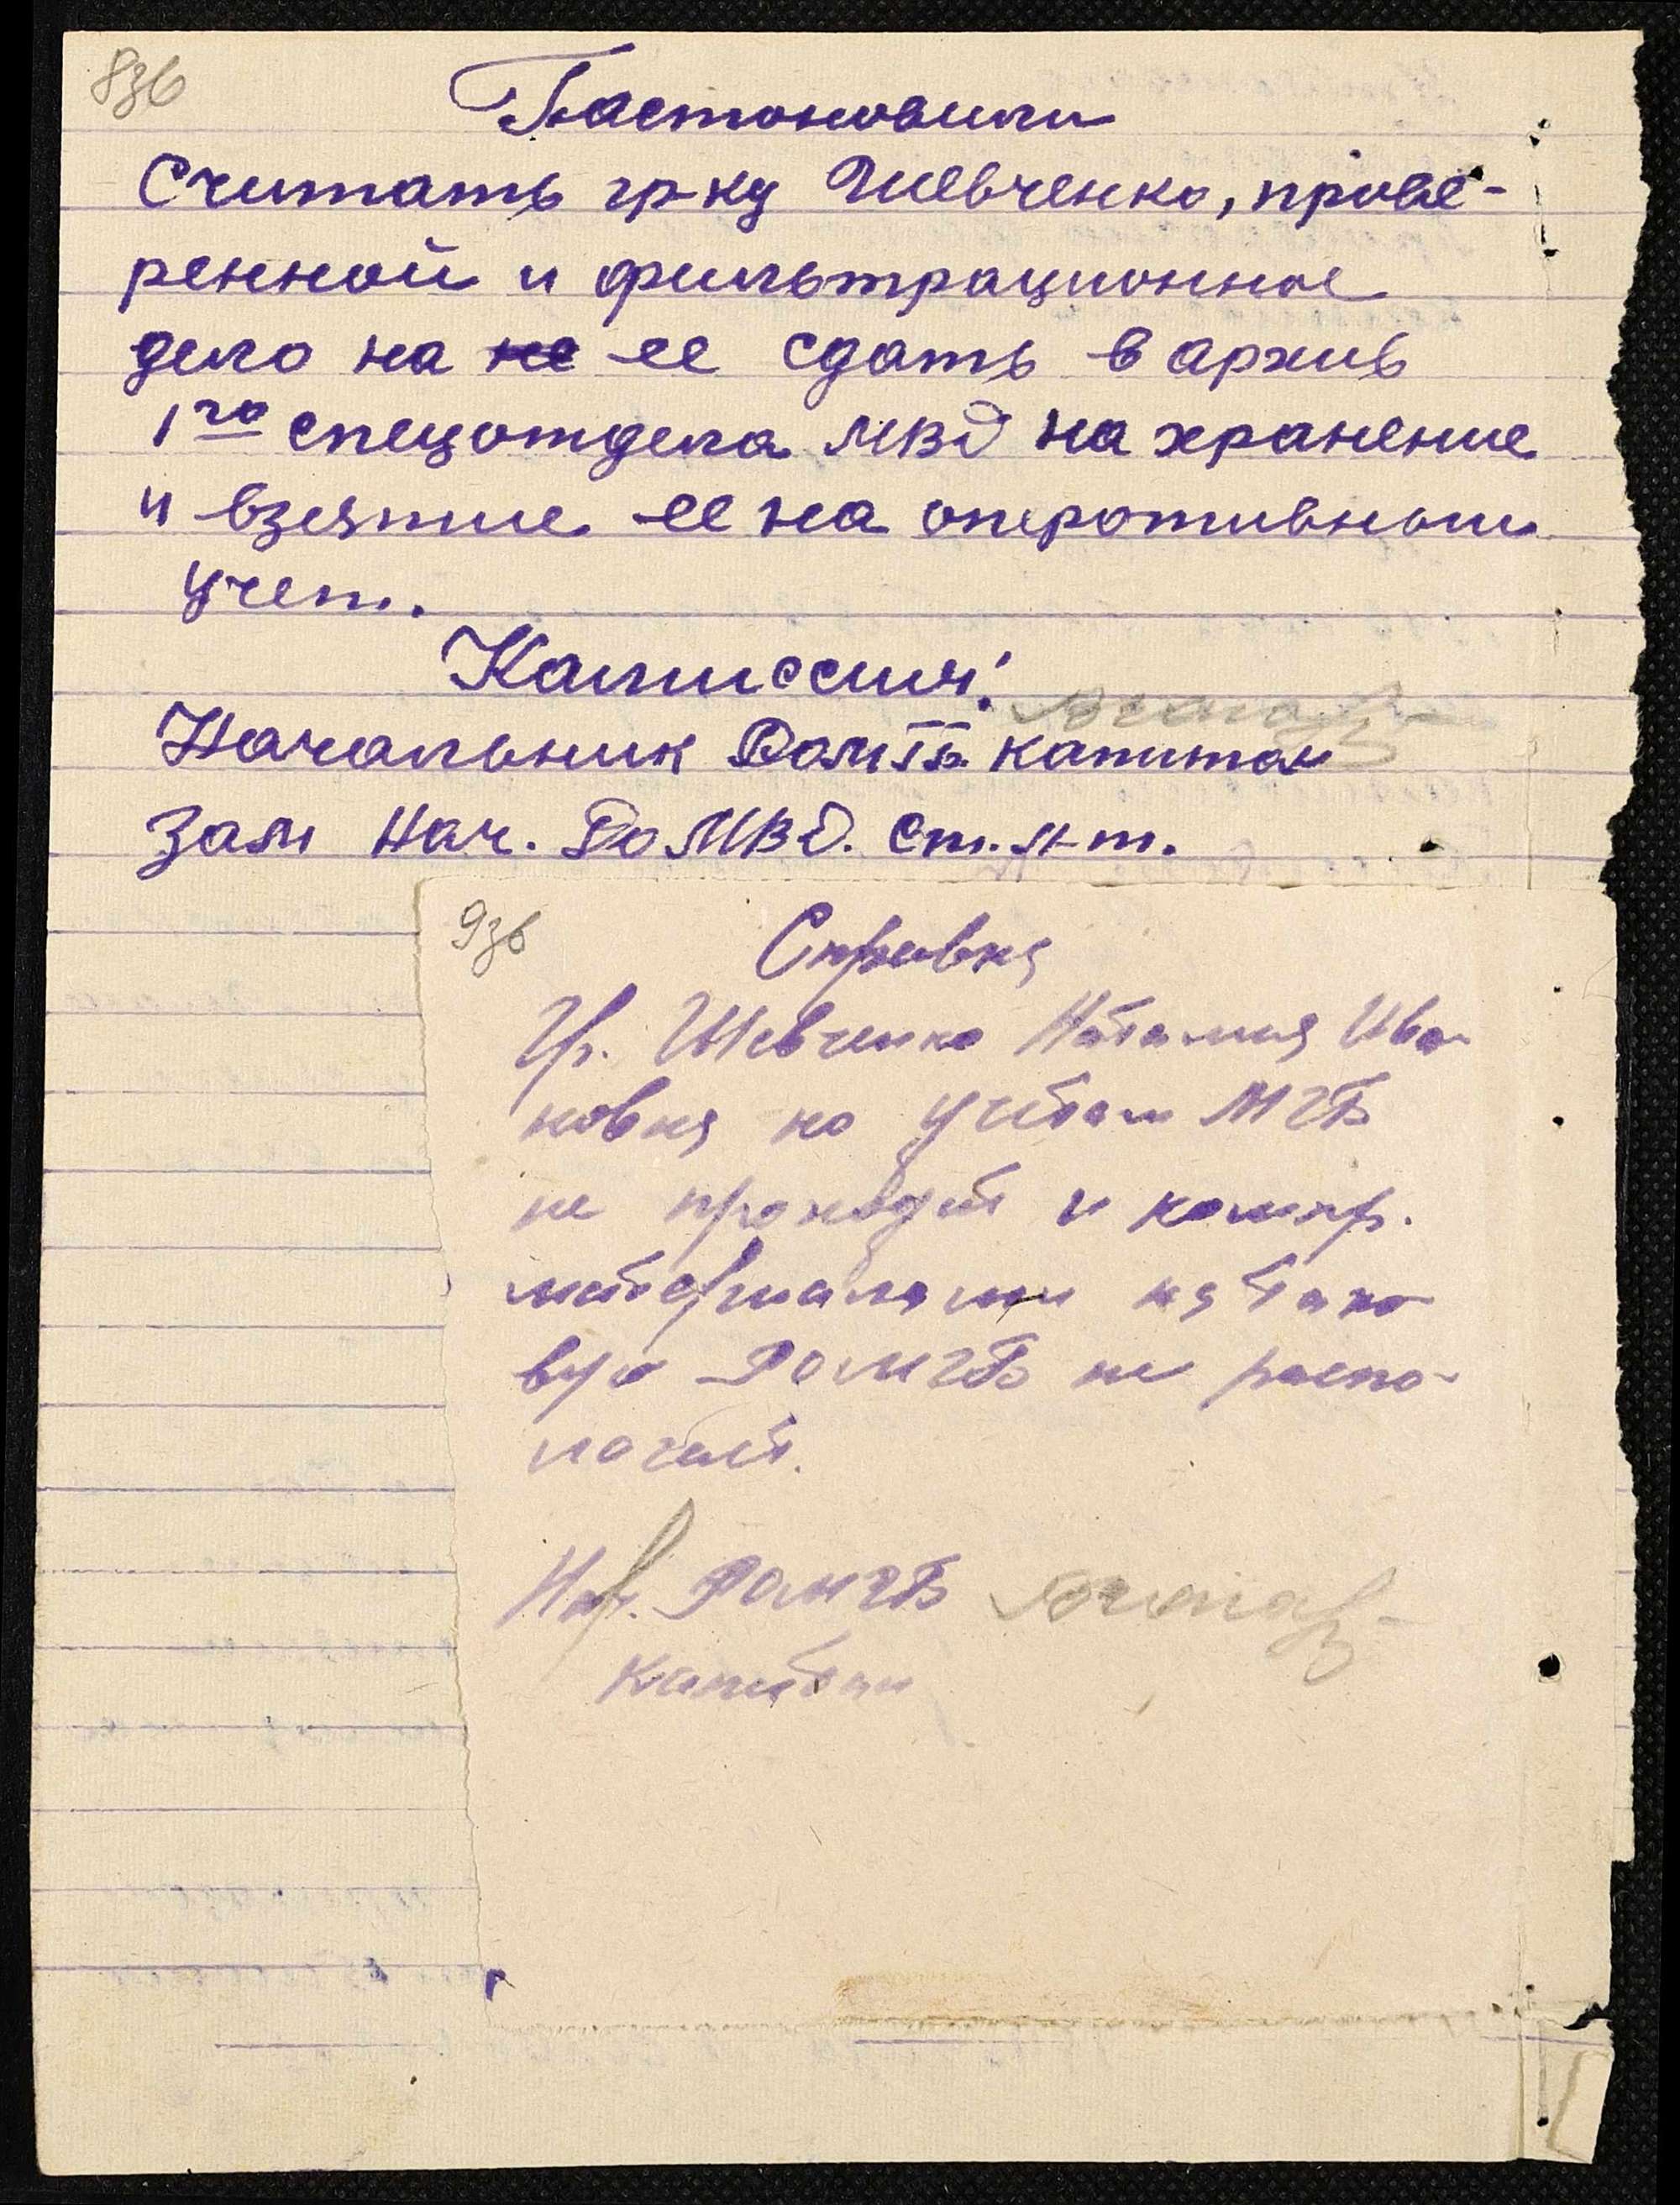 8зв
Пастоновили
Считать гр-ку Шевченко, прове-
ренной и фильтрационное
дело на не ее сдать в архив
1го спецотдела МВД на хранение
и взятие ее на оперотивныи
учет.
Камиссия:
Начальник РОМГБ капитан
Зам Нач. РоМВД. Ст. л-т.
9зв
Справка
Гр. Шевченко Наталия Ива-
новна по учетам МГБ
не проходит и компр.
материалами на тако-
вую РОМГБ не распо-
логает.
Нач. РОМГБ
Капитан